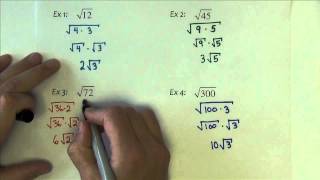 Ex 1: √12
√4 · 3
√4 · √3
2√3
Ex 2: √45
√9 · 5
√9 · √5
3√5
Ex 3: √72
√36·2
√36 · √2
6√2
Ex 4: √300
√100 · 3
√100 · √3
10√3